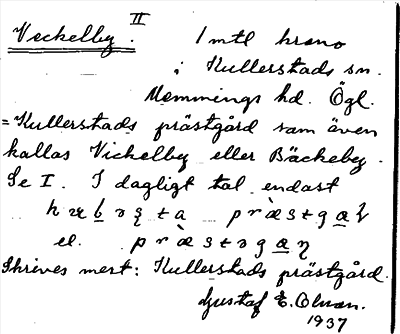 Veckelby. II 1 mtl krono
i Kullerstads sn.
Memmings hd. Ögl.
= Kullerstads prästgård som även
kallas Vickelby eller Bäckeby.
Se I. I dagligt tal endast
præstgaḷ
el. præstrgaṇ
Skrives mest: Kullerstads prästgård.
Gustaf E. Olman.
1937